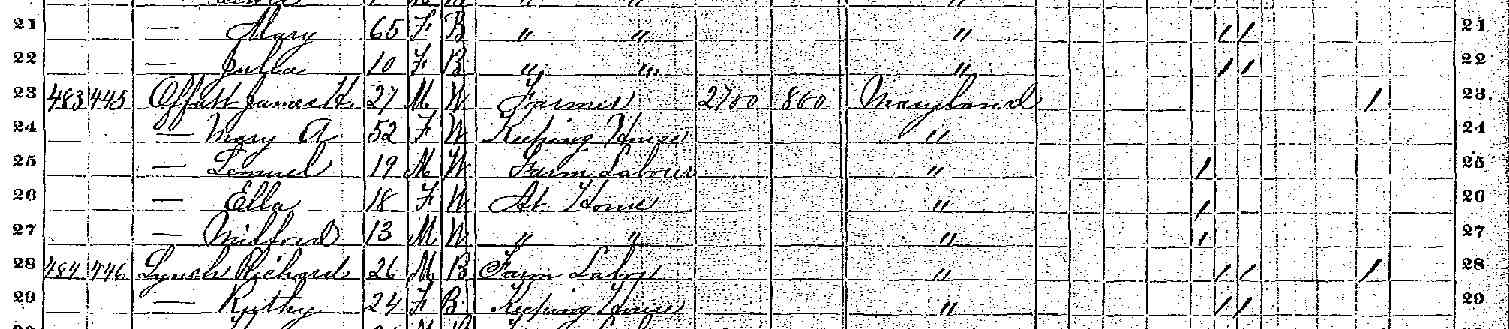 21 — Mary 65 F B " " " / / 21
22 — Julia 10 F B " " " / / 22
23 483 445 Offutt James H. 27 M W Farmer 2700 800 Maryland / 23
24 — Mary A 52 F W Keeping House " 24
25 — Lemuel 19 M W Farm Labour " / 25
26 — Ella 18 F W At Home " / 26
27 — Milford 13 M W " " " / 27
28 484 446 Lynch Richard 26 M B Farm Labor " / / / 28
29 — Ruthy 24 F B Keeping House " / / 29